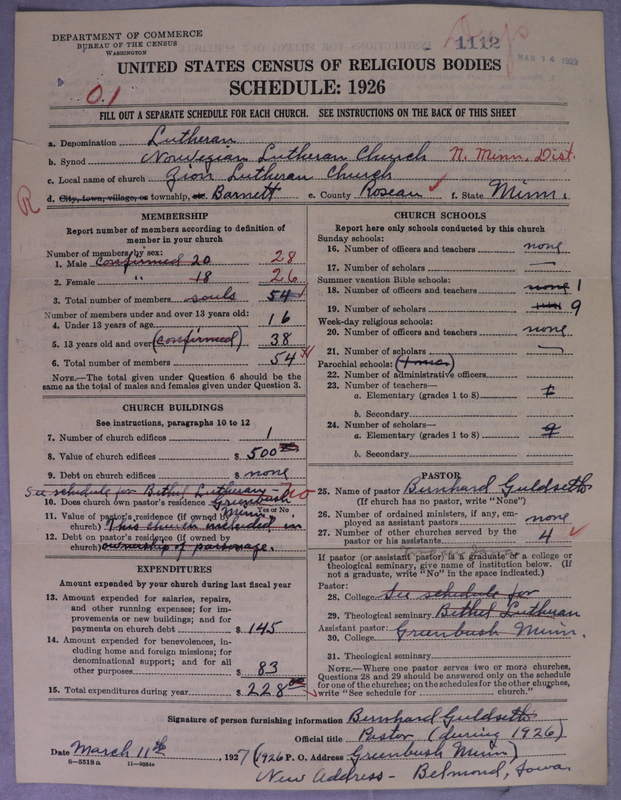 DEPARTMENT OF COMMERCE
BUREAU OF THE CENSUS
WASHINGTON
1112
MAR 14 1927
UNITED STATES CENSUS OF RELIGIOUS BODIES
SCHEDULE: 1926
01
FILL OUT A SEPARATE SCHEDULE FOR EACH CHURCH. SEE INSTRUCTIONS ON THE BACK OF THIS SHEET
a. Denomination Lutheran
b. Synod Norwegian Lutheran Church N. Minn. Dist.
c. Local name of church Zion Lutheran Church
d. City, town, village, or township, etc. Barnett e. County Roseau f. State Minn.
R
MEMBERSHIP
Report number of members according to definition of
member in your church
Number of members by sex:
1. Male confirmed 20 28
2. Female " 18 26
3. Total number of members souls 54
Number of members under and over 13 years old:
4. Under 13 years of age 16
5. 13 years old and over (confirmed) 38
6. Total number of members 54
NOTE.—The total given under Question 6 should be the
same as the total of males and females given under Question 3.
CHURCH BUILDINGS
See instructions, paragraphs 10 to 12
7. Number of church edifices 1
8. Value of church edifices $ 500 00
9. Debt on church edifices $ none
See schedule for Bethel Lutheran no
10. Does church own pastor's residence? Greenbush Yes or No
11. Value of pastor's residence (if owned by Minn.
church) This church included in
12. Debt on pastor's residence (if owned by
church) ownership of parsonage.
EXPENDITURES
Amount expended by your church during last fiscal year
13. Amount expended for salaries, repairs,
and other running expenses; for im-
provements or new buildings; and for
payments on church debt $ 145
14. Amount expended for benevolences, in-
cluding home and foreign missions; for
denominational support; and for all
other purposes $ 83
15. Total expenditures during year $ 228 00
CHURCH SCHOOLS
Report here only schools conducted by this church
Sunday schools:
16. Number of officers and teachers none
17. Number of scholars —
Summer vacation Bible schools:
18. Number of officers and teachers none 1
19. Number of scholars 9
Week-day religious schools:
20. Number of officers and teachers none
21. Number of scholars —
Parochial schools:
22. Number of administrative officers
23. Number of teachers—
a. Elementary (grades 1 to 8) 1
b. Secondary
24. Number of scholars—
a. Elementary (grades 1 to 8) 9
b. Secondary
PASTOR
25. Name of pastor Bernhard Guldseth
(If church has no pastor, write "None")
26. Number of ordained ministers, if any, em-
ployed as assistant pastors none
27. Number of other churches served by the
pastor or his assistants 4
If pastor (or assistant pastor) is a graduate of a college or
theological seminary, give name of institution below. (If
not a graduate, write "No" in the space indicated.)
Pastor:
28. College See schedule for
29. Theological seminary Bethel Lutheran
Assistant pastor:
30. College Greenbush Minn.
31. Theological seminary
NOTE.—Where one pastor serves two or more churches,
Questions 28 and 29 should be answered only on the schedule
for one of the churches; on the schedules for the other churches,
write "See schedule for church."
Signature of person furnishing information Bernhard Guldseth
Official title Pastor (during 1926)
Date March 11th, 1927 (1926 P. O. Address Greenbush Minn)
8—5518 a
New Address - Belmond, Iowa